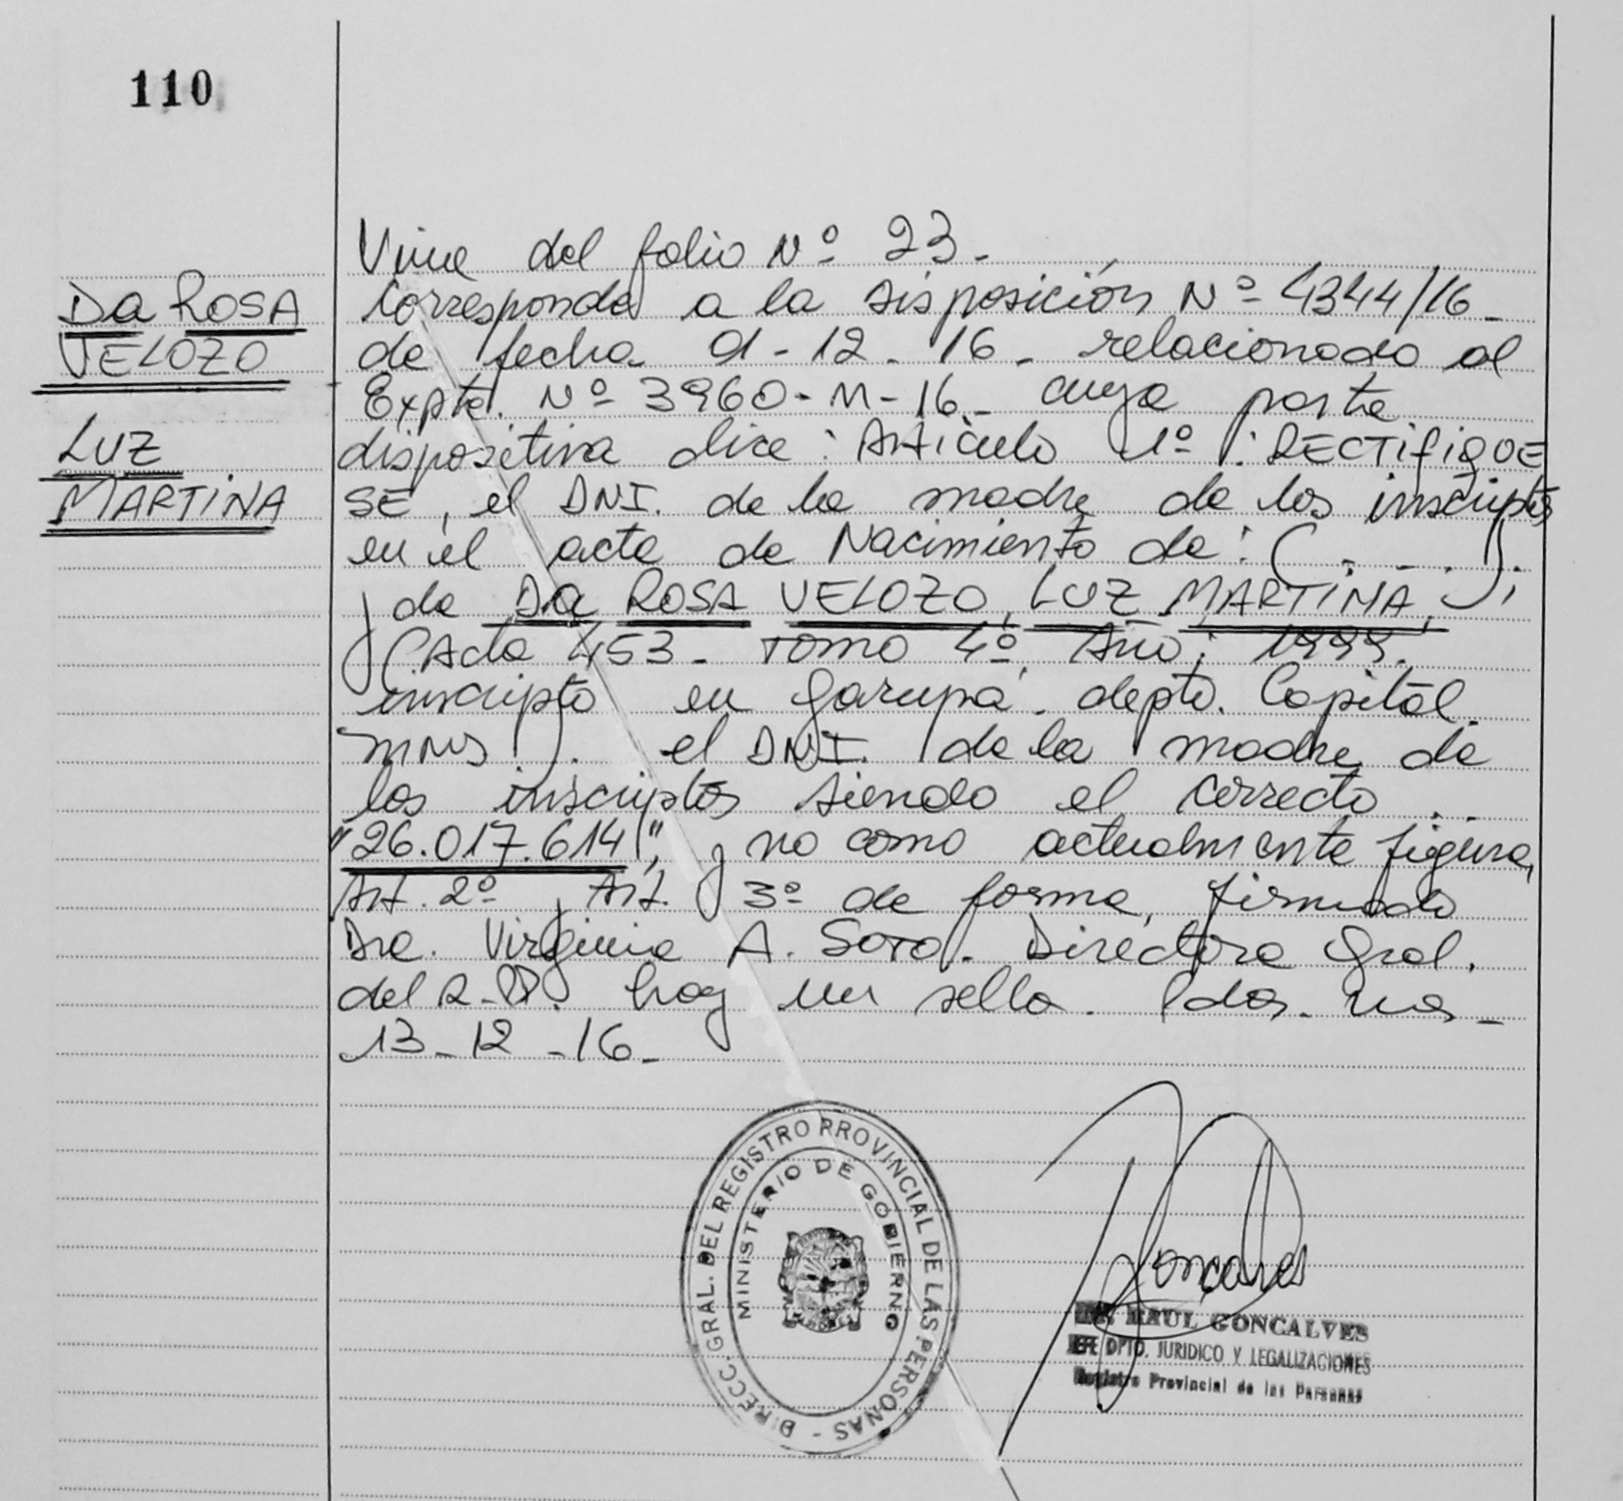 110
Da ROSA
VELOZO
LUZ
MARTINA
Viene del folio Nº 23.-
Corresponde a la disposición Nº 4344/16-
de fecha 01-12-16- relacionado al
Expte. Nº 3960-M-16- cuya parte
dispositiva dice: Artículo 1º: RECTIFIQUE
SE, el DNI. de la madre de los inscriptos
en el acta de Nacimiento de: (.....);
y de Da ROSA VELOZO, LUZ MARTINA,
(Acta 453- TOMO 4º Año: 1999.
inscripto en Garupá. depto. Capital.
MNS). el DNI. de la madre de
los inscriptos siendo el correcto
"26.017.614", y no como actualmente figura,
Art. 2º, Art. 3º de forma, firmado
Dra. Virginia A. SOTO. Directora Gral.
del R.P.P. hay un sello. Pdas. Mns-
13-12-16-
DIRECC. GRAL. DEL REGISTRO PROVINCIAL DE LAS PERSONAS -
MINISTERIO DE GOBIERNO
Goncalves
RAUL GONCALVES
JEFE DPTO. JURIDICO Y LEGALIZACIONES
Registro Provincial de las Personas